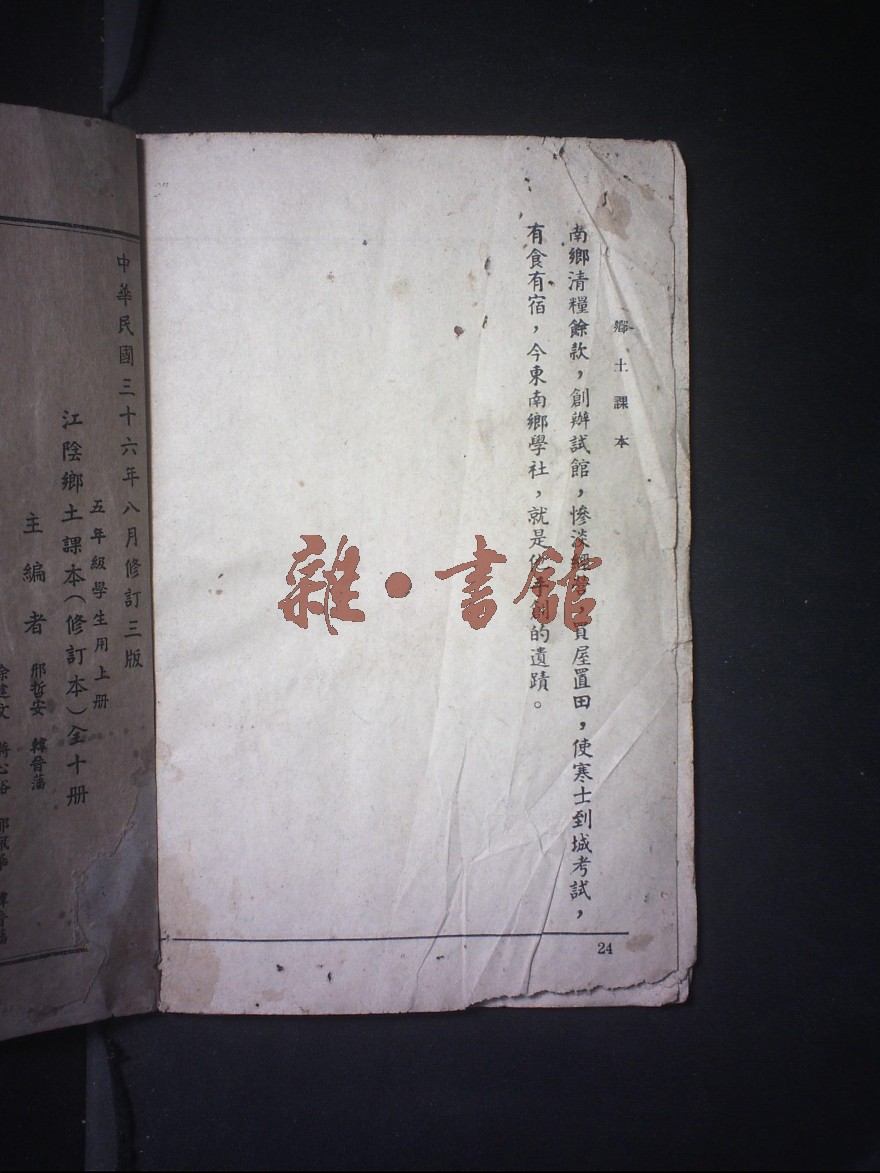 鄉土課本
南鄉清糧餘款，創辦試館，慘淡經營，買屋置田，使寒士到城考試，
有食有宿，今東南鄉學社，就是他手創的遺蹟。
24
雜·書館
中華民國三十六年八月修訂三版
五年級學生用上册
江陰鄉土課本（修訂本）全十册
主編者
邢哲安 韓晉藩